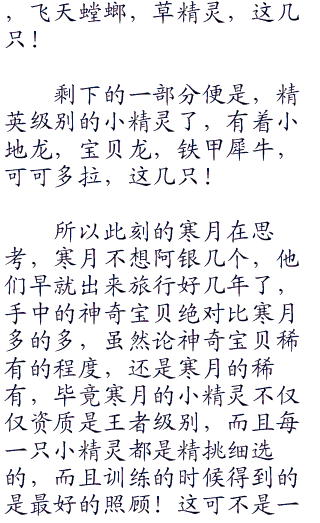 ，飞天螳螂，草精灵，这几
只！
剩下的一部分便是，精
英级别的小精灵了，有着小
地龙，宝贝龙，铁甲犀牛，
可可多拉，这几只！
所以此刻的寒月在思
考，寒月不想阿银几个，他
们早就出来旅行好几年了，
手中的神奇宝贝绝对比寒月
多的多，虽然论神奇宝贝稀
有的程度，还是寒月的稀
有，毕竟寒月的小精灵不仅
仅资质是王者级别，而且每
一只小精灵都是精挑细选
的，而且训练的时候得到的
是最好的照顾！这可不是一